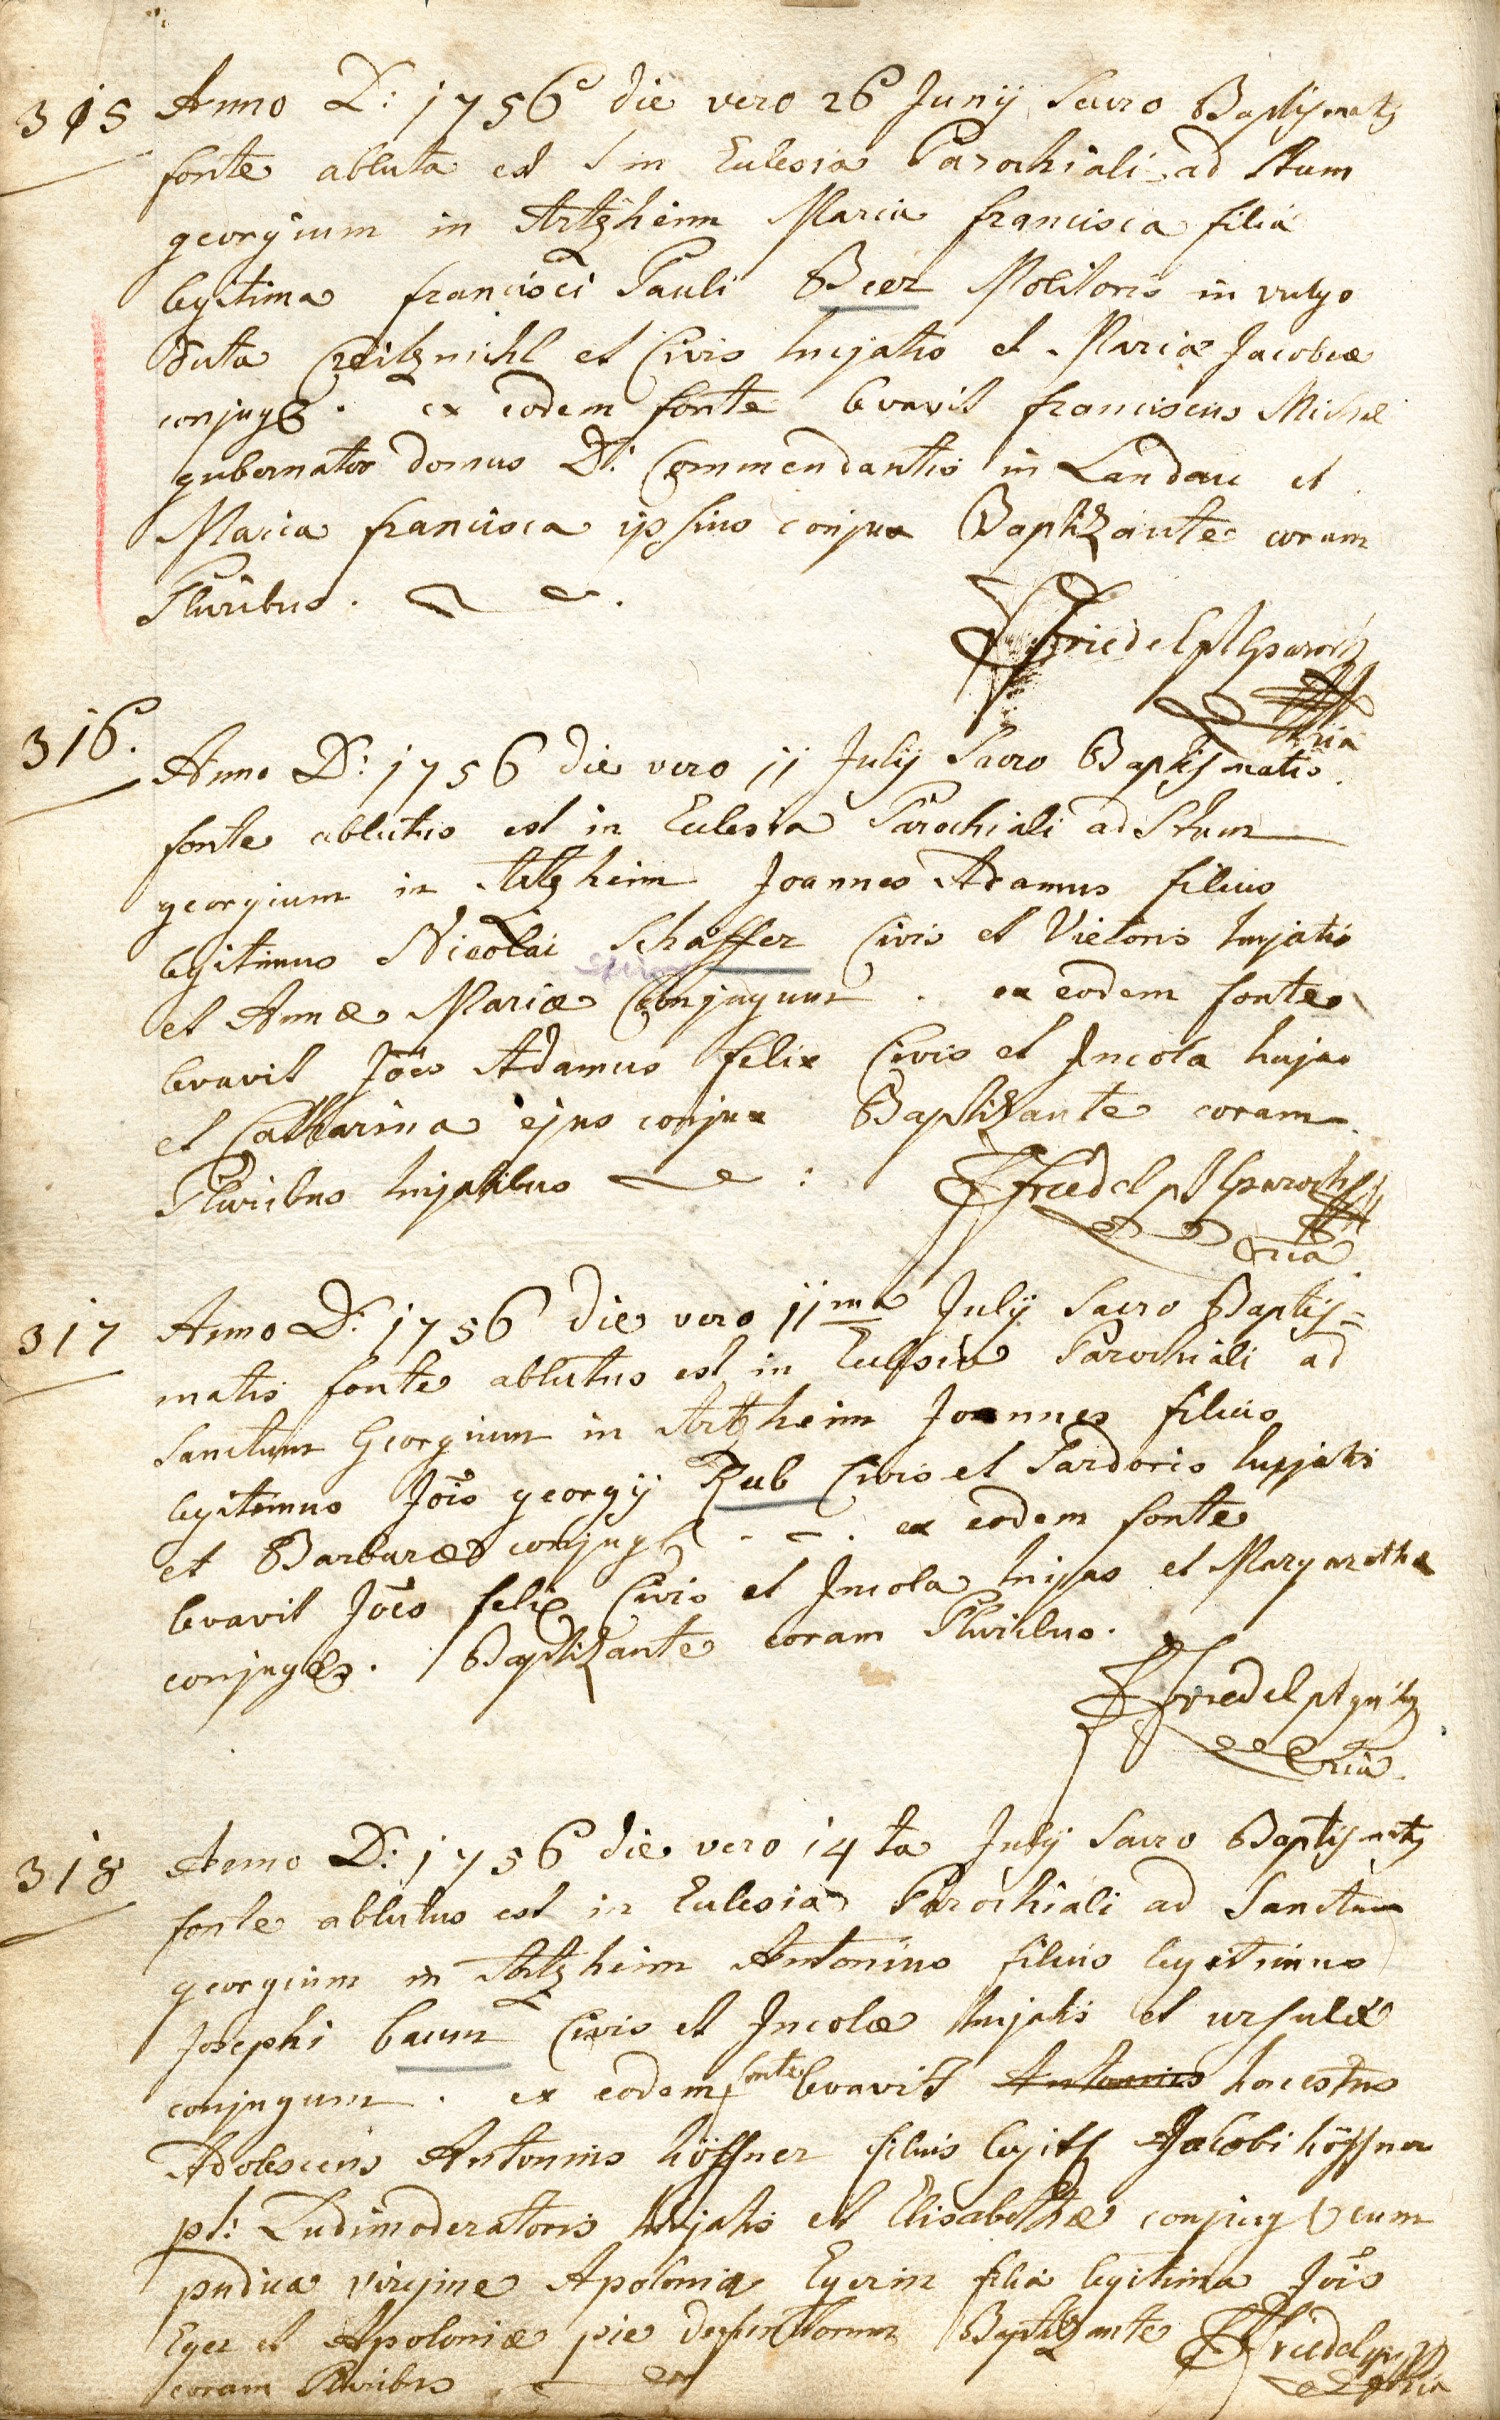 315 Anno D: 1756 die vero 26 Junij Sacro Baptismatis
fonte abluta est in Eclesia Parochiali ad Stum
georgium in Artzheim Maria francisca filia
legitima francisci Pauli Beer Molitoris in vulgo
dicta Creitzmihl et Civis hujatis et Mariæ Jacobeæ
conjug. ex eodem fonte levavit franciscus Michel
gubernator domus D: Commendantis in Landau et
Maria francisca ipsius conjux Baptizante coram
Pluribus.
Friedel pt parochus
316. Anno D: 1756 die vero 11 Julij Sacro Baptismatis
fonte ablutus est in Eclesia Parochiali ad Stum
georgium in Artzheim Joannes Adamus filius
legitimus Nicolai Schaffer Civis et Vietoris hujatis
et Annæ Mariæ Conjugum. ex eodem fonte
levavit Joes Adamus felix Civis et Incola hujas
et Catharina ejus conjux Baptizante coram
Pluribus hujatibus : Friedel pt parochus
317 Anno D: 1756 die vero 11ma July Sacro Baptis=
matis fonte ablutus est in Eclesia Parochiali ad
Sanctum Georgium in Artzheim Joannes filius
legitimus Jois georgij Rub Civis et Sardoris hujatis
et Barbaræ conjug. ex eodem fonte
levavit Joes felix Civis et Incola hujas et Margaretha
conjuges. Baptizante coram Pluribus.
Friedel pt
318 Anno D: 1756 die vero 14ta July Sacro Baptismatis
fonte ablutus est in Eclesia Parochiali ad Sanctum
georgium in Artzheim Antonius filius legitimus
Josephi baum Civis et Incolæ hujatis et ursulæ
conjugum. ex eodem fonte levavit Antonius honestus
Adolescens Antonius höffner filius legit Jacobi höffner
pt: Ludimoderatoris hujatis et Elisabethæ conjug cum
pudica virgine Apolonia Egerin filia legitima Jois
Eger et Apoloniæ pie defunctorum Baptizante Friedel
coram Pluribus